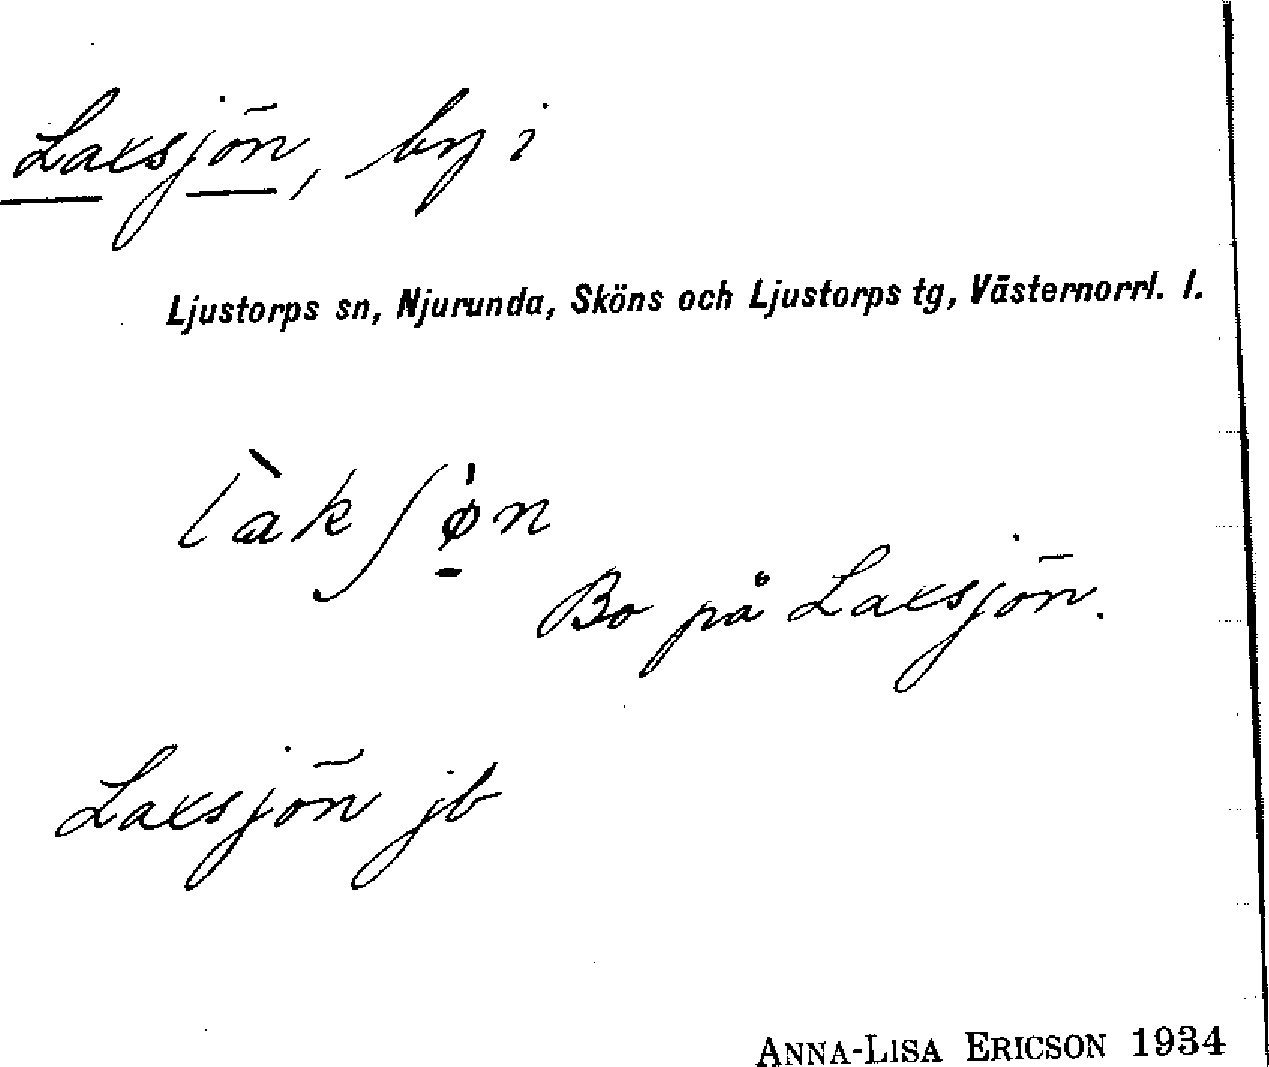 Laxsjön, by i
Ljustorps sn, Njurunda, Sköns och Ljustorps tg, Västernorrl. l.
làkʃǿ̠n
Bo på Laxsjön.
Laxsjön jb
ANNA-LISA ERICSON 1934